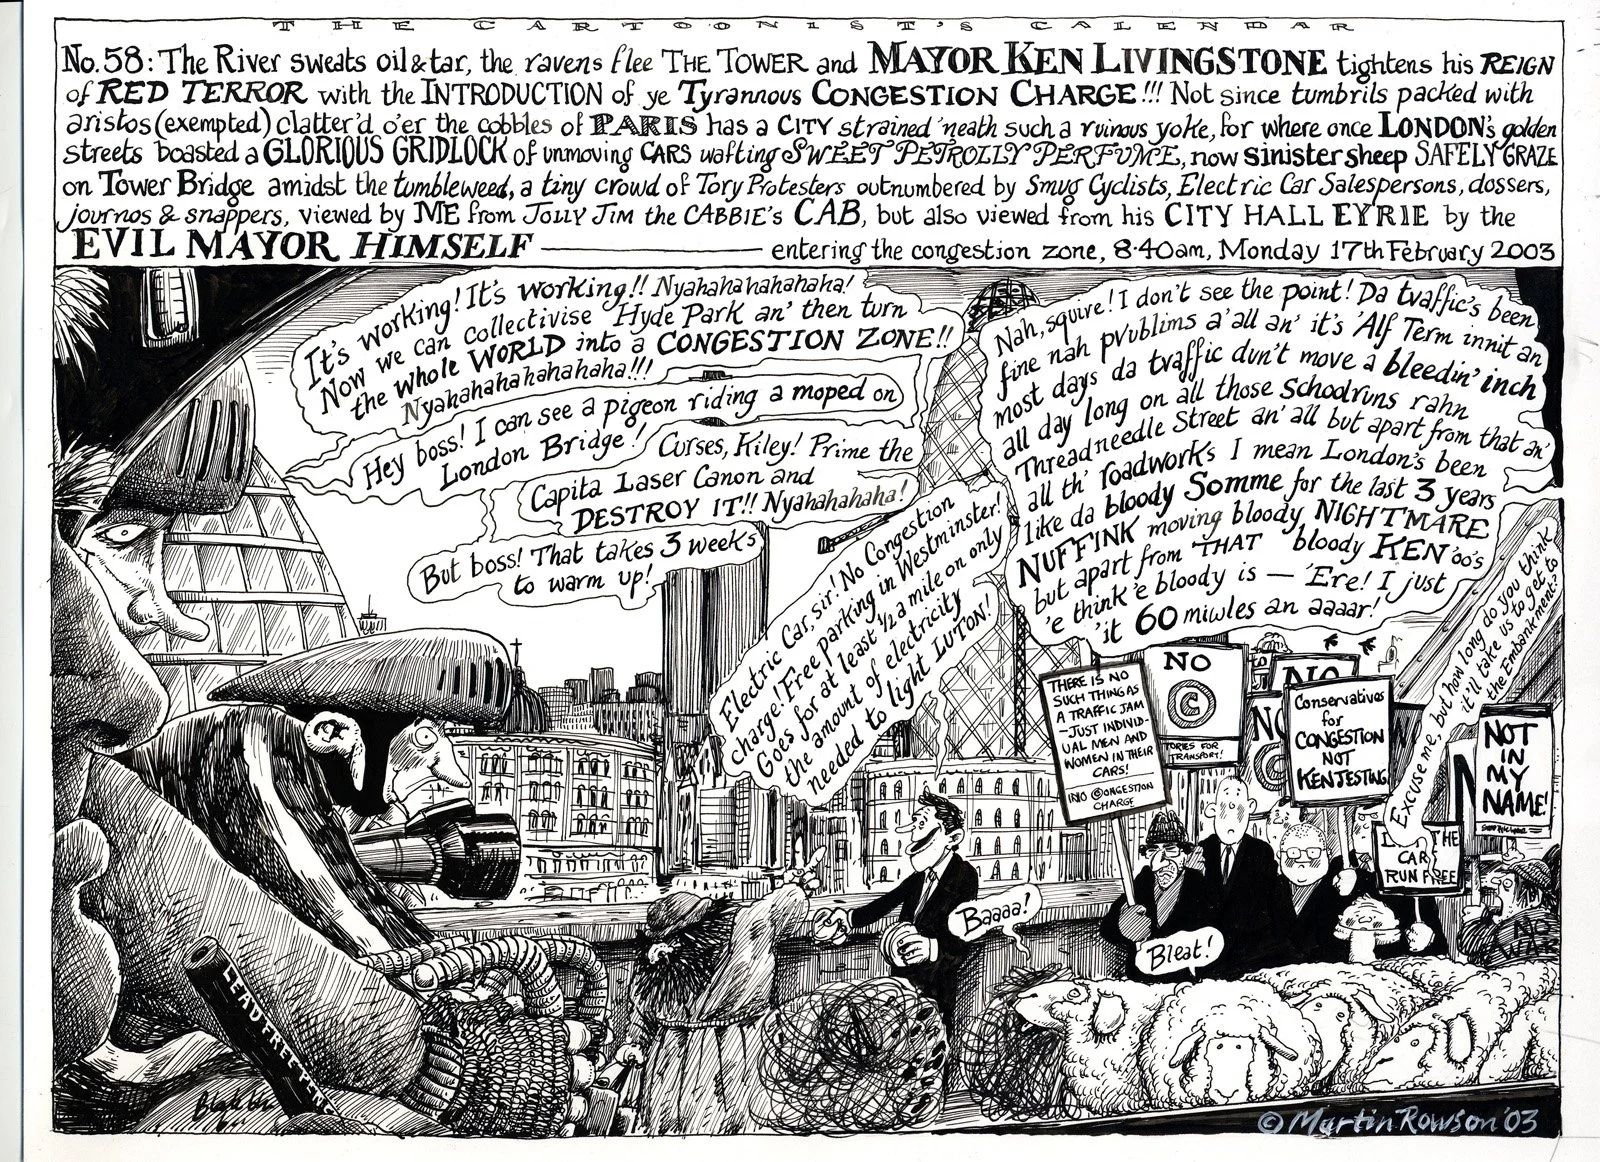 THE CARTOONIST'S CALENDAR
No. 58: The River sweats oil & tar, the ravens flee THE TOWER and MAYOR KEN LIVINGSTONE tightens his REIGN
of RED TERROR with the INTRODUCTION of ye Tyrannous CONGESTION CHARGE!!! Not since tumbrils packed with
aristos (exempted) clatter'd o'er the cobbles of PARIS has a CITY strained 'neath such a ruinous yoke, for where once LONDON's golden
streets boasted a GLORIOUS GRIDLOCK of unmoving CARS wafting SWEET PETROLLY PERFUME, now sinister sheep SAFELY GRAZE
on Tower Bridge amidst the tumbleweed, a tiny crowd of Tory Protesters outnumbered by Smug Cyclists, Electric Car Salespersons, dossers,
journos & snappers, viewed by ME from JOLLY JIM the CABBIE's CAB, but also viewed from his CITY HALL EYRIE by the
EVIL MAYOR HIMSELF — entering the congestion zone, 8·40am, Monday 17th February 2003
It's working! It's working!! Nyahahahahahaha!
Now we can collectivise Hyde Park an' then turn
the whole WORLD into a CONGESTION ZONE!!
Nyahahahahahahaha!!!
Hey boss! I can see a pigeon riding a moped on
London Bridge!
Curses, Kiley! Prime the
Capita Laser Canon and
DESTROY IT!! Nyahahahaha!
But boss! That takes 3 weeks
to warm up!
Electric Car, sir! No Congestion
charge! Free parking in Westminster!
Goes for at least 1/2 a mile on only
the amount of electricity
needed to light LUTON!
Nah, squire! I don't see the point! Da tvaffic's been
fine nah pvublims a'all an' it's 'Alf Term innit an
most days da tvaffic dun't move a bleedin' inch
all day long on all those schoolruns rahn
Threadneedle Street an' all but apart from that an'
all th' roadworks I mean London's been
like da bloody Somme for the last 3 years
NUFFINK moving bloody NIGHTMARE
but apart from 'THAT 'bloody KEN 'oo's
'e think 'e bloody is — 'Ere! I just
'it 60 miwles an aaaar!
Excuse me, but how long do you think
it'll take us to get to
the Embankment?
THERE IS NO
SUCH THING AS
A TRAFFIC JAM
—JUST INDIVID-
UAL MEN AND
WOMEN IN THEIR
CARS!
NO ©ONGESTION
CHARGE
NO
©
TORIES FOR
TRANSPORT!
NO
NO
©
Conservatives
for
CONGESTION
NOT
KENJESTING
NOT
IN
MY
NAME!
THE
CAR
RUN FREE
NO
WAR
Baaaa!
Bleat!
LEAD FREE PENC
© Martin Rowson '03